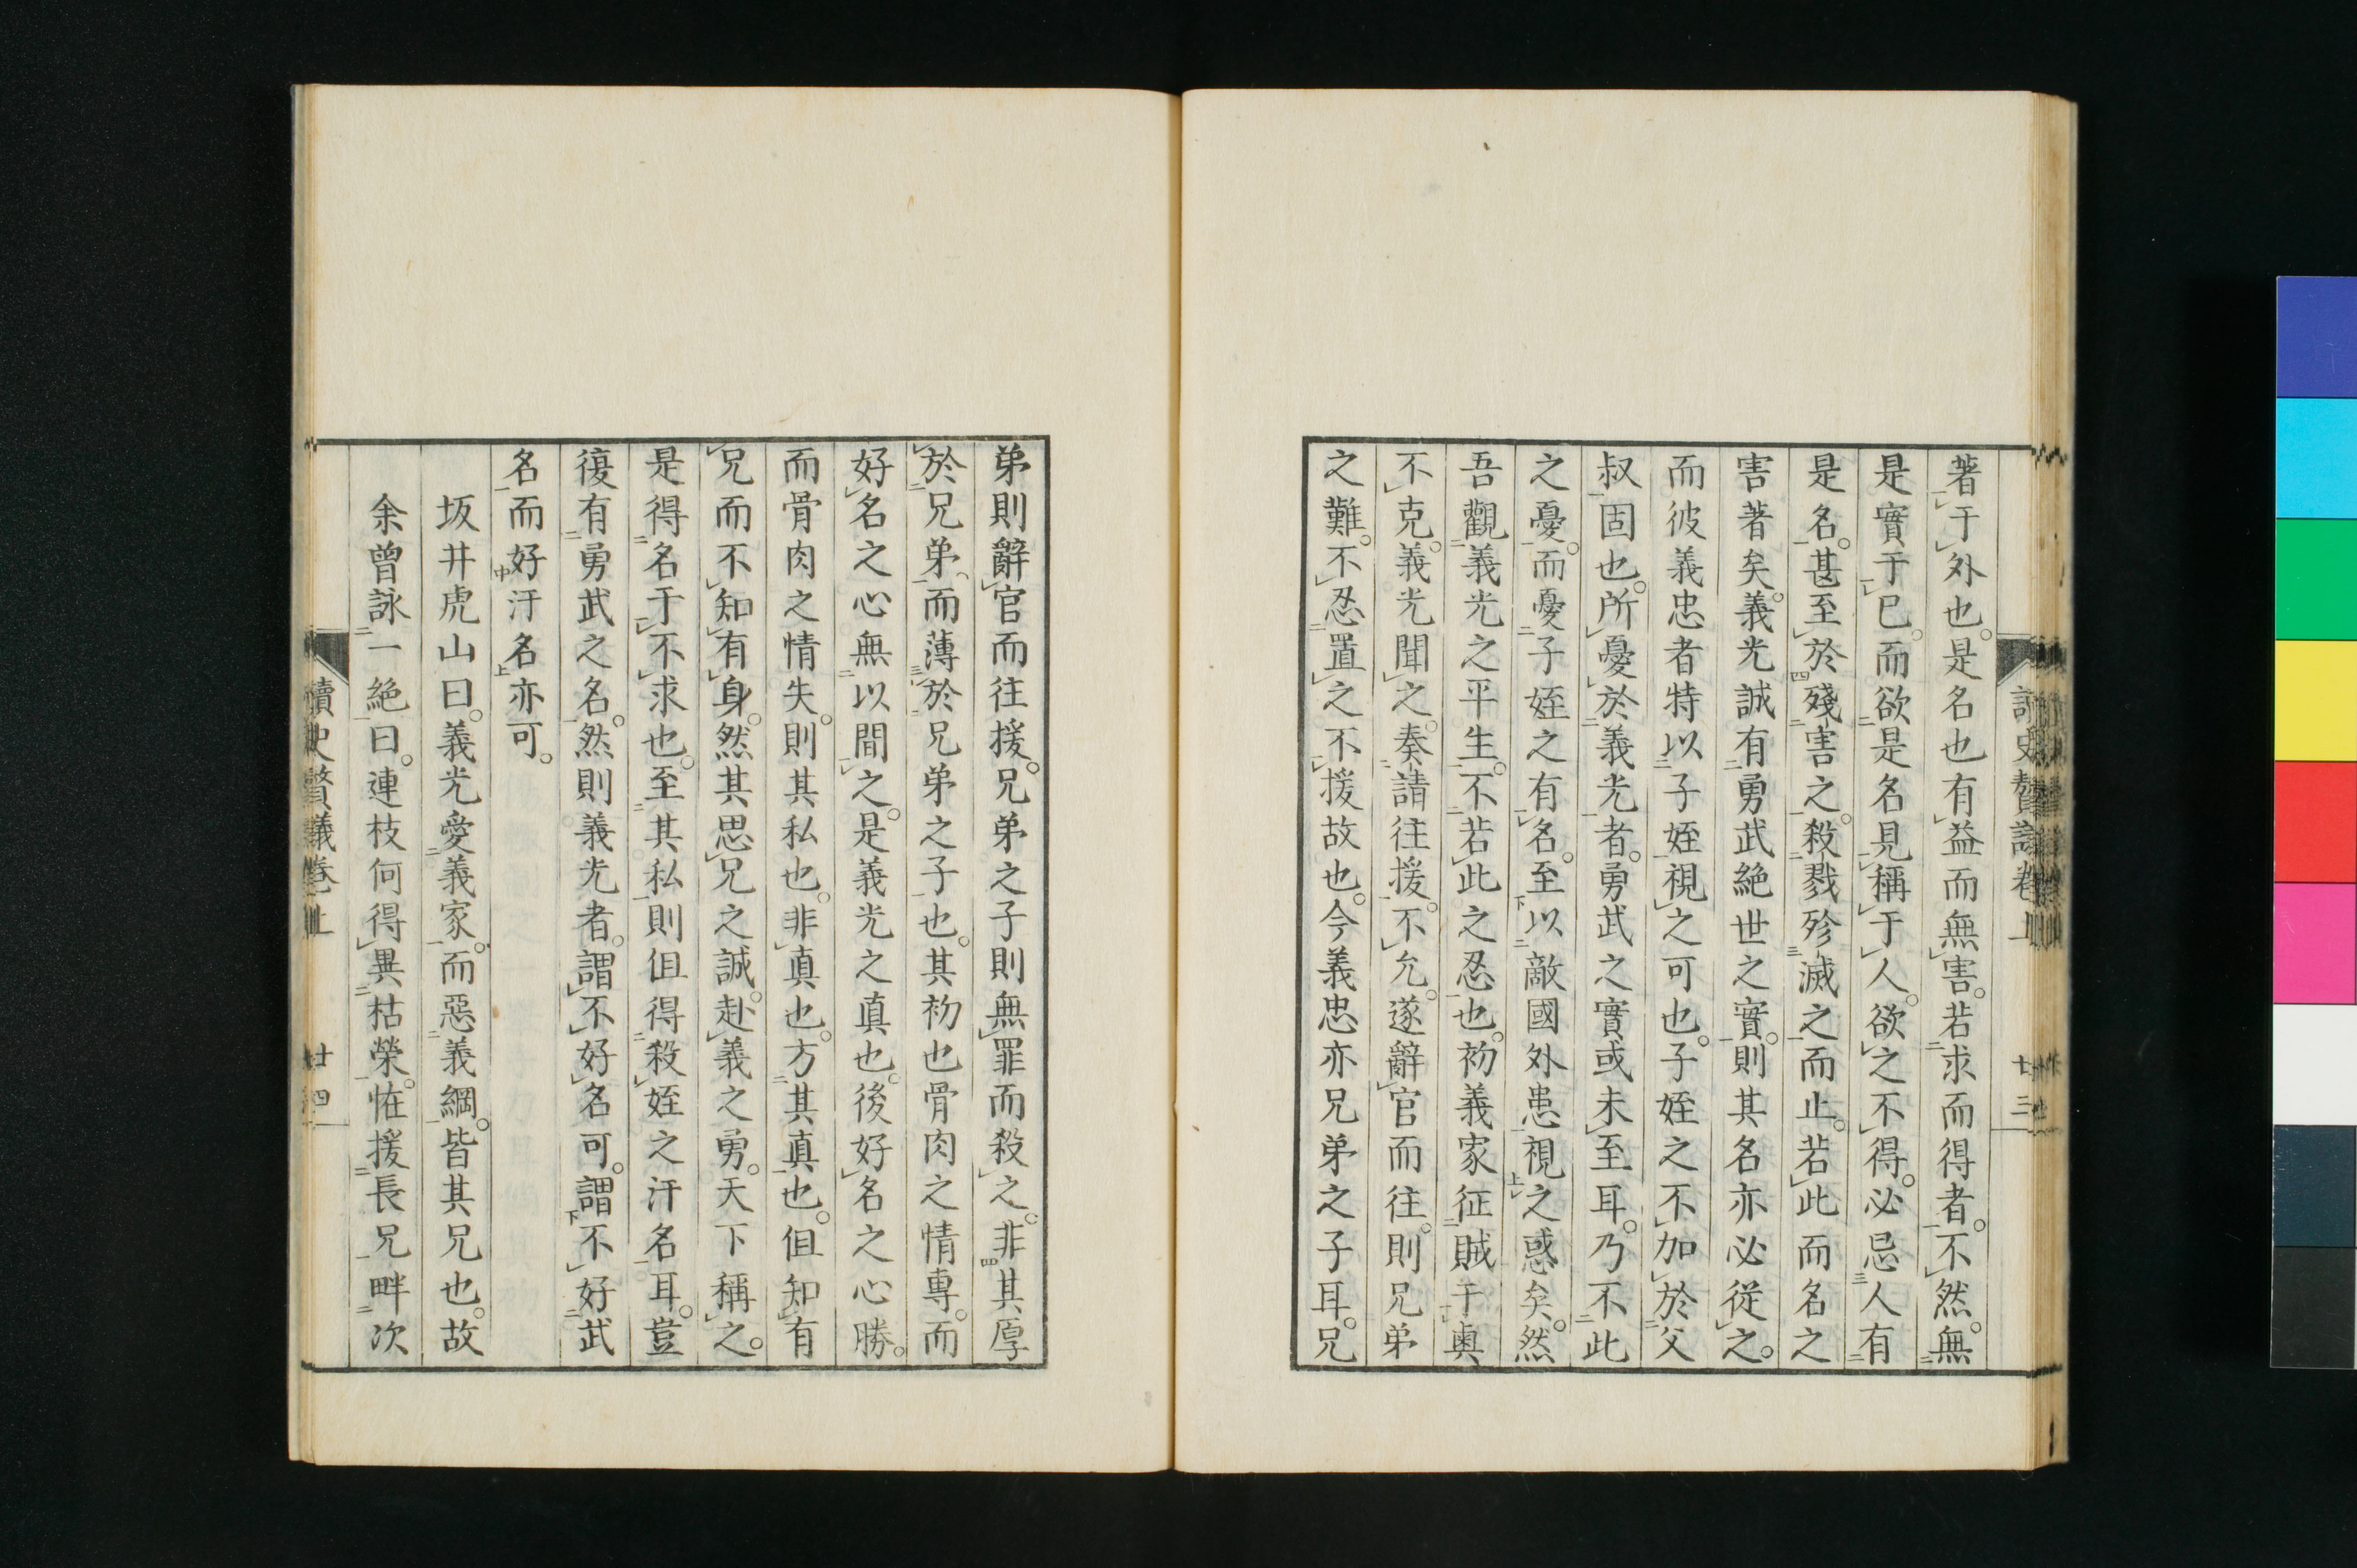 著于外也。是名也有益而無害。若求而得者。不然。無
是實于已。而欲是名見稱于人。欲之不得。必忌人有
是名。甚至於殘害之。殺戮殄滅之而止。若此而名之
害著矣。義光誠有勇武絶世之實。則其名亦必從之。
而彼義忠者特以子姪視之可也。子姪之不加於父
叔固也。所憂於義光者。勇武之實或未至耳。乃不此
之憂。而憂子姪之有名。至以敵國外患視之惑矣。然
吾觀義光之平生。不若此之忍也。初義家征賊于奧
不克。義光聞之。奏請往援。不允。遂辭官而往。則兄弟
之難。不忍置之不援故也。今義忠亦兄弟之子耳。兄
讀史贅議卷上 廿三
弟則辭官而往援。兄弟之子則無罪而殺之。非其厚
於兄弟。而薄於兄弟之子也。其初也骨肉之情專。而
好名之心無以間之。是義光之真也。後好名之心勝。
而骨肉之情失。則其私也。非真也。方其真也。但知有
兄而不知有身。然其思兄之誠。赴義之勇。天下稱之。
是得名于不求也。至其私則但得殺姪之汙名耳。豈
復有勇武之名。然則義光者。謂不好名可。謂不好武
名而好汙名亦可。
坂井虎山曰。義光愛義家。而惡義綱。皆其兄也。故
余曾詠一絶曰。連枝何得異枯榮。恠援長兄畔次
讀史贅議卷上 廿四